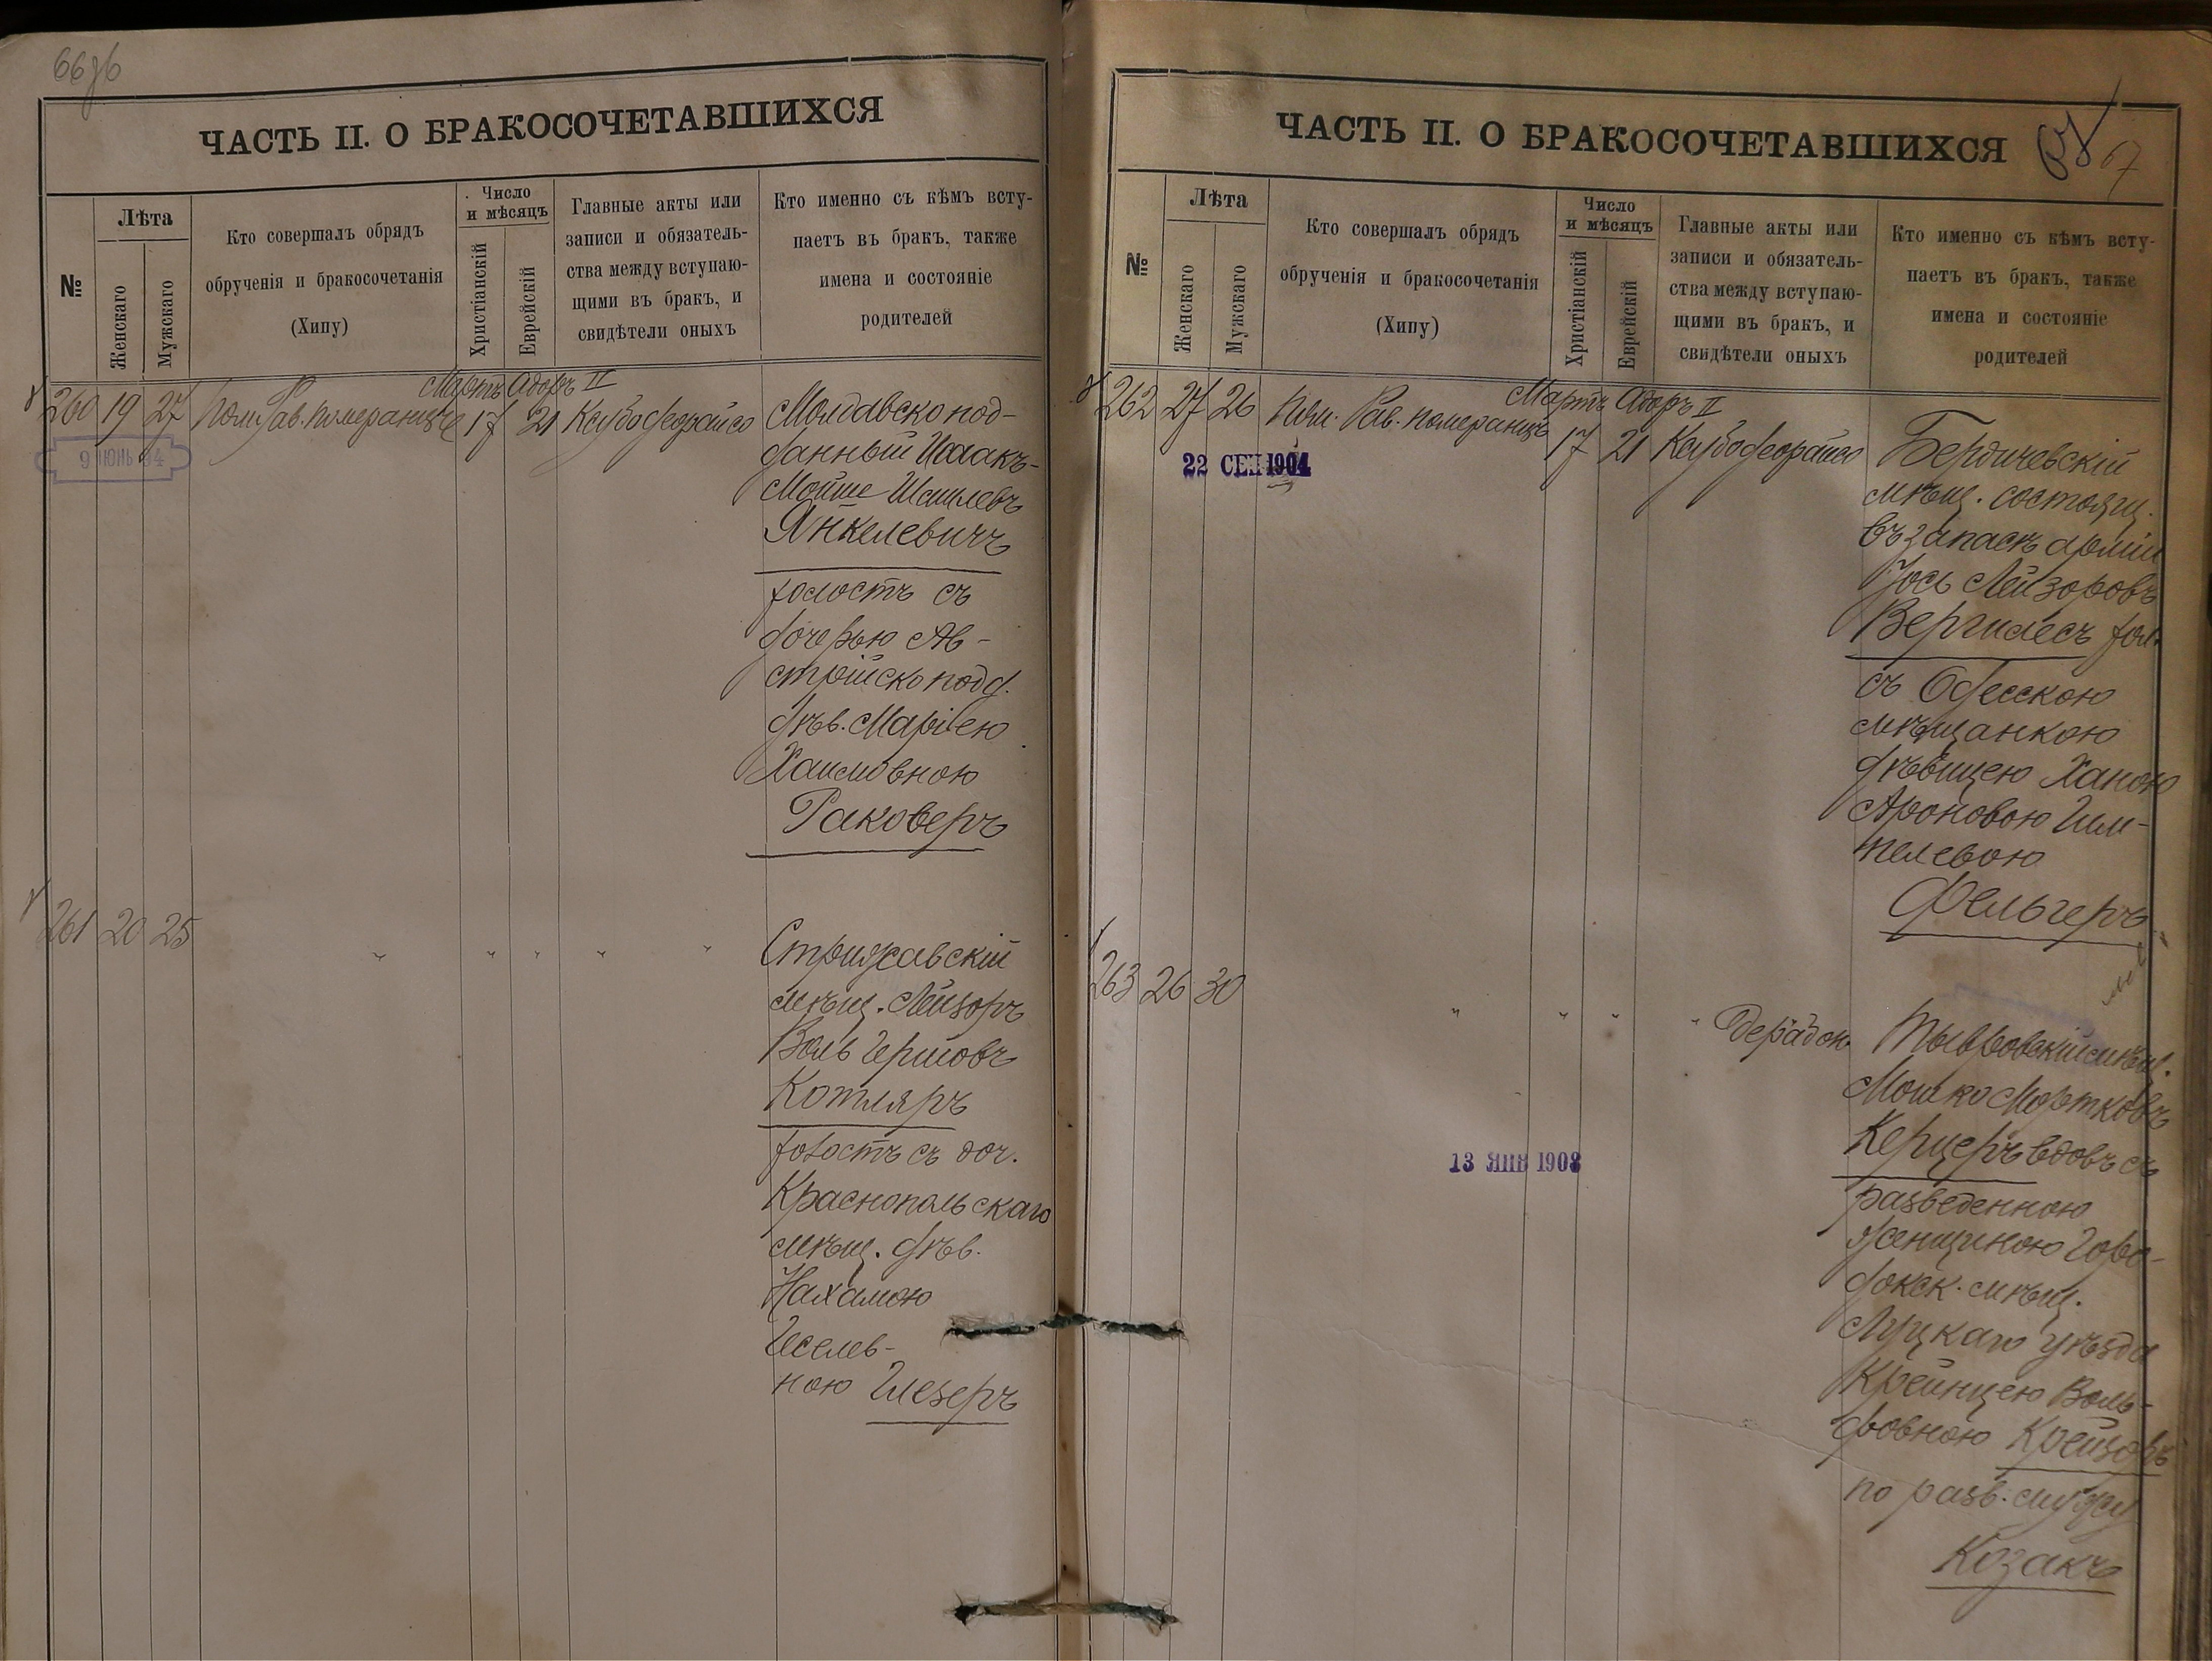 66
ЧАСТЬ II. О БРАКОСОЧЕТАВШИХСЯ
№
Лѣта
Женскаго
Мужскаго
Кто совершалъ обрядъ
обрученія и бракосочетанія
(Хипу)
Число
и мѣсяцъ
Христіанскій
Еврейскій
Главные акты или
записи и обязатель-
ства между вступаю-
щими въ бракъ, и
свидѣтели оныхъ
Кто именно съ кѣмъ всту-
паетъ въ бракъ, также
имена и состояніе
родителей
Мартъ Адоръ II
260 19 27 Пом. Рав. Померанцъ 17 21 Ксубо Феорайсо
9 ИЮНЬ 04
Молдавско под-
данный Исаакъ-
Мойше Шмилевъ
Янкелевичъ
холостъ съ
дочерью Ав-
стрійско подд.
дѣв. Маріею
Хаимовною
Раковеръ
261 20 25 " " " " "
Стрижавскій
мѣщ. Лейзоръ
Воль Гершовъ
Котляръ
холостъ съ доч.
Краснопольскаго
мѣщ. дѣв.
Нахамою
Иселев-
ною Глезеръ
ЧАСТЬ II. О БРАКОСОЧЕТАВШИХСЯ
67
№
Лѣта
Женскаго
Мужскаго
Кто совершалъ обрядъ
обрученія и бракосочетанія
(Хипу)
Число
и мѣсяцъ
Христіанскій
Еврейскій
Главные акты или
записи и обязатель-
ства между вступаю-
щими въ бракъ, и
свидѣтели оныхъ
Кто именно съ кѣмъ всту-
паетъ въ бракъ, также
имена и состояніе
родителей
Мартъ Адоръ II
262 27 26 Пом. Рав. Померанцъ 17 21 Ксубо Феорайсо
22 СЕН 1904
Бердичевскій
мѣщ. состоящ.
въ запасѣ арміи
Іось Лейзоровъ
Вергилесъ хол.
съ Одесскою
мѣщанкою
дѣвицею Ханою
Ароновою Гим-
пелевою
Фельгеръ
263 26 30 " " " "
Дерабон.
13 ЯНВ 1908
Тывровскій мѣщ.
Мошко Мортковъ
Керцеръ вдовъ съ
разведенною
женщиною Горо-
докск. мѣщ.
Луцкаго уѣзда
Крейнцею Воль-
фовною Крейзоръ
по разв. мужу
Козакъ